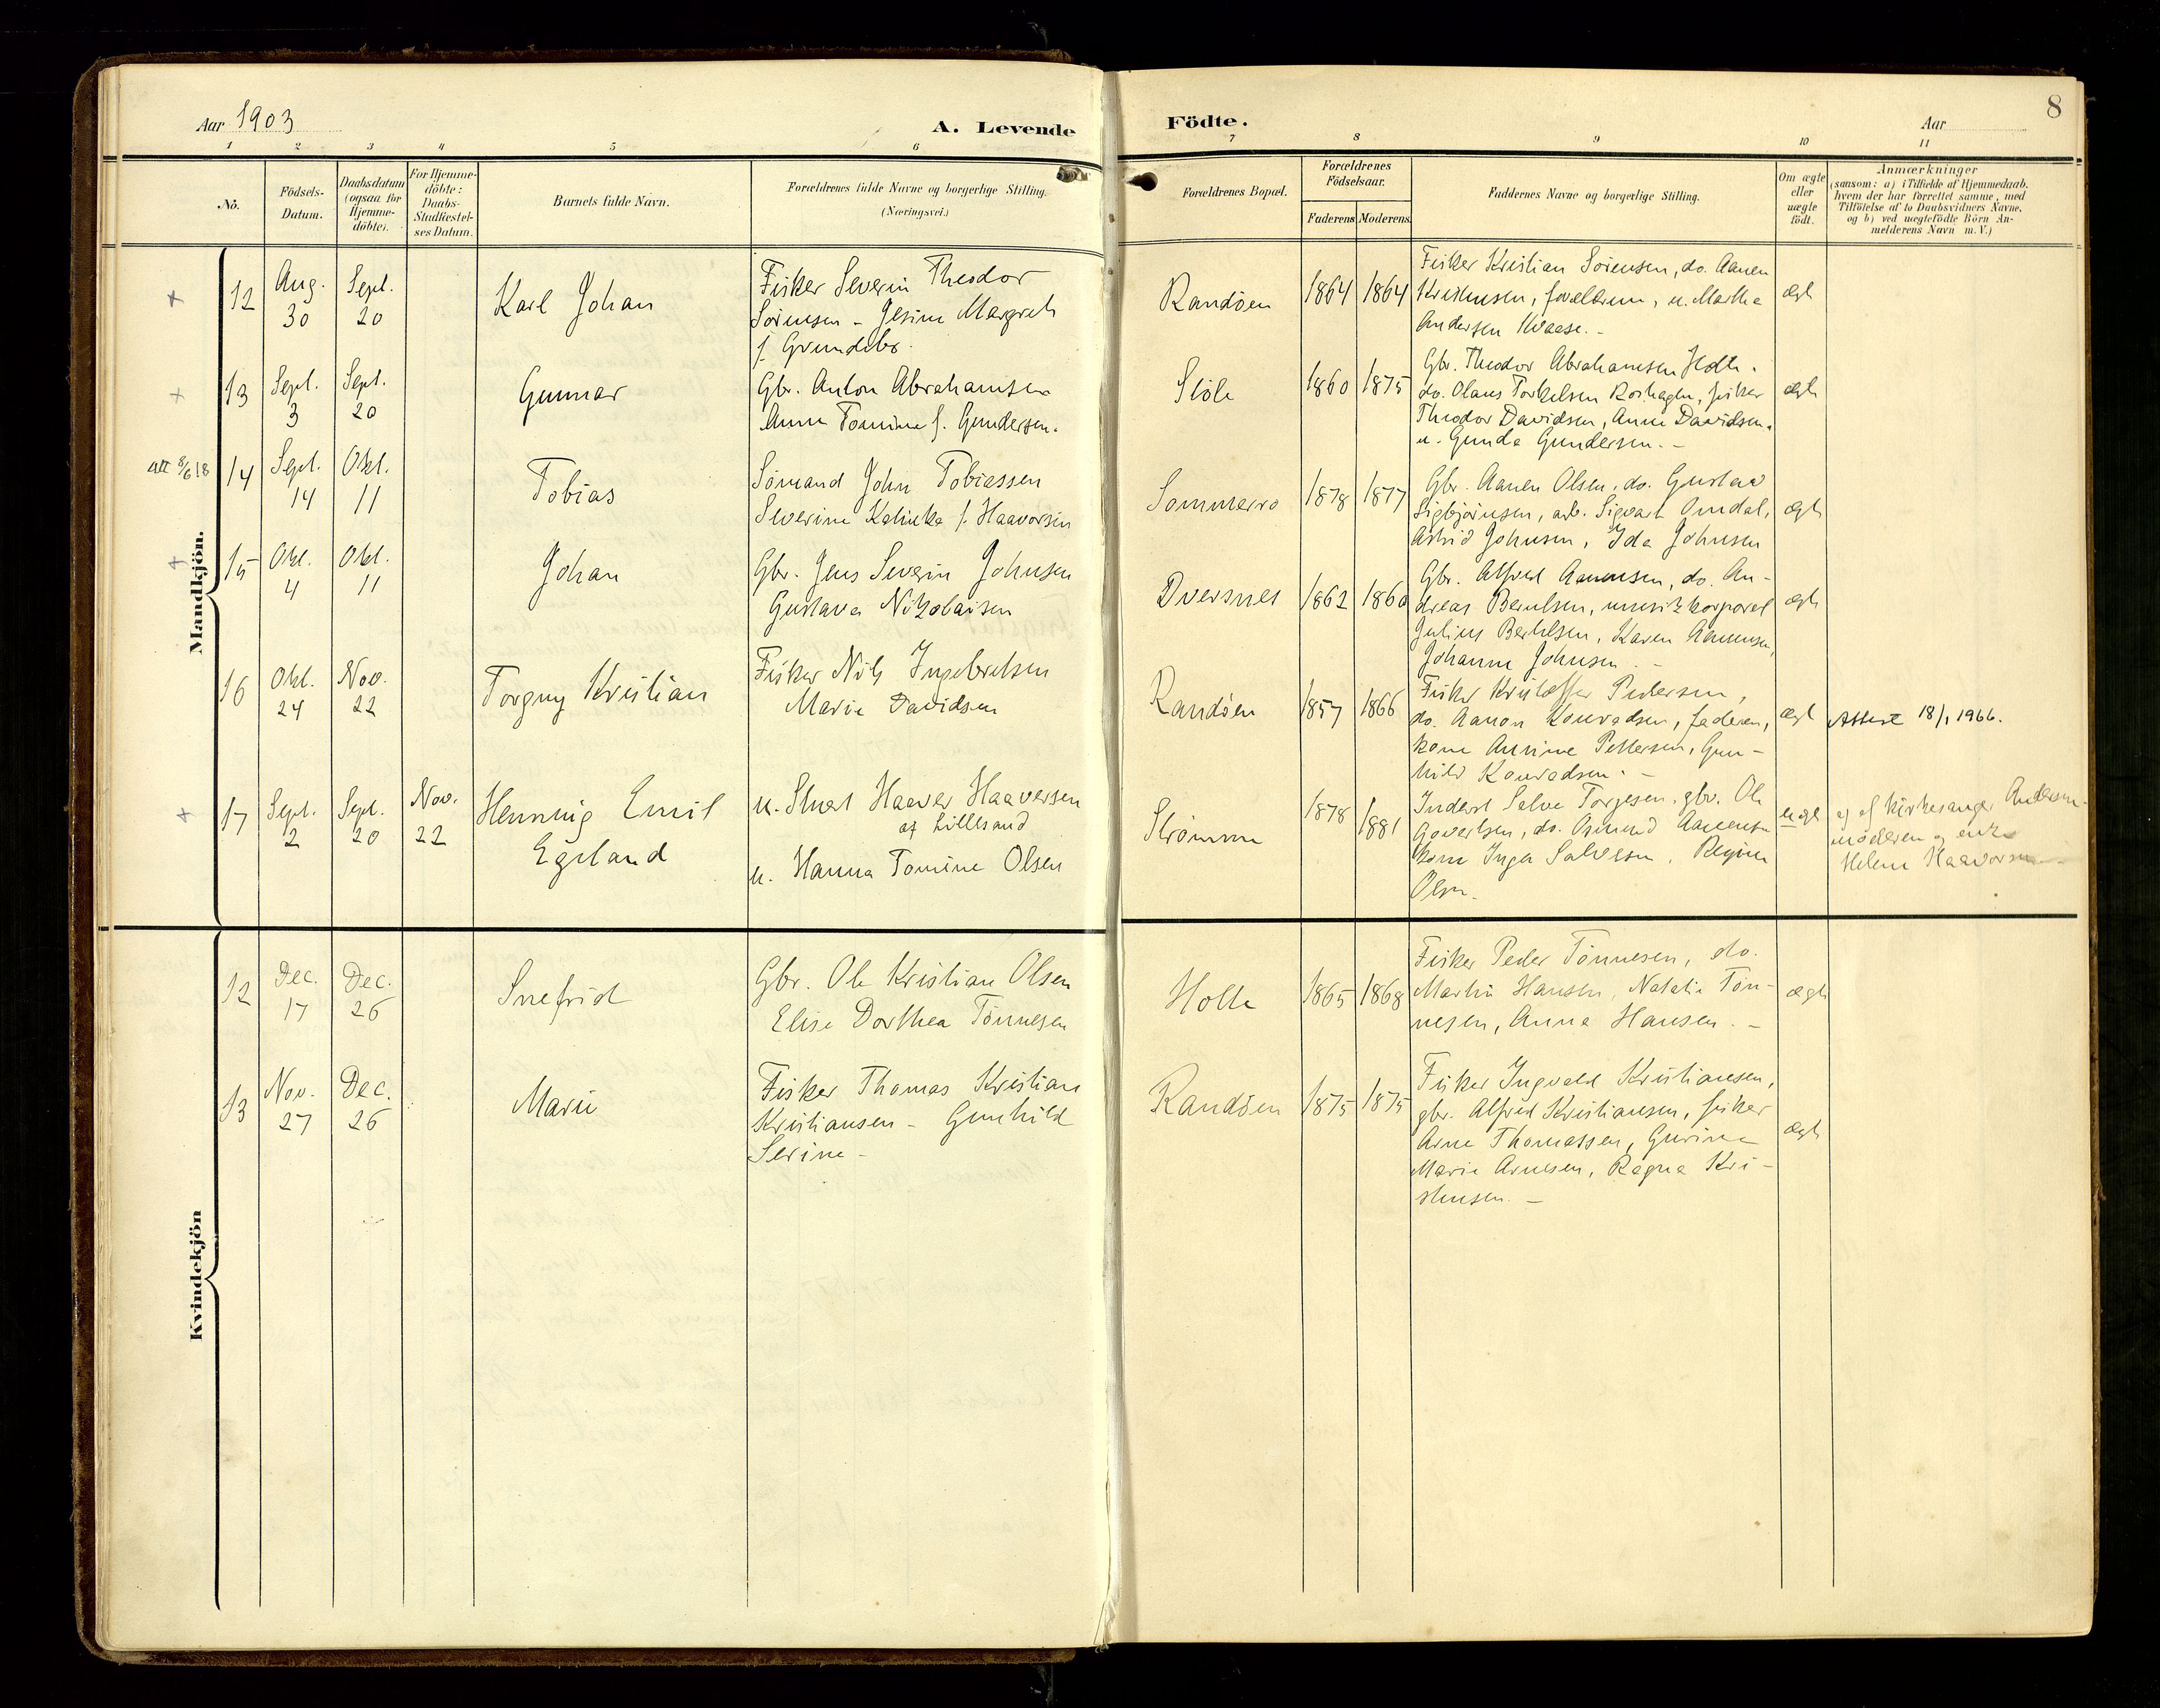 8
Aar 1903
A. Levende
Födte.
Aar
1 2 3 4 5 6 7 8 9 10 11
No.
Födsels-
Datum.
Daabsdatum
(ogsaa for
Hjemme-
döbte).
For Hjemme-
döbte:
Daabs-
Stadfæstel-
ses Datum.
Barnets fulde Navn.
Forældrenes fulde Navne og borgerlige Stilling.
(Næringsvei.)
Forældrenes Bopæl.
Forældrenes
Födselsaar.
Faderens Moderens.
Faddernes Navne og borgerlige Stilling.
Om ægte
eller
uægte
födt.
Anmærkninger
(saasom: a) i Tilfælde af Hjemmedaab,
hvem der har forrettet samme, med
Tilföielse af to Daabsvidners Navne,
og b) ved uægtefödte Börn An-
melderens Navn m. V.)
Mandkjön.
12
Aug.
30
Sept.
20
Karl Johan
Fisker Severin Theodor
Sörensen - Jesine Margreth
f. Grundebr.
Randöen
1864 1864
Fisker Kristian Sörensen, do. Aanen
Kristensen, forældrene, u. Martha
Andersen Kvaase. -
ægte
13
Sept.
3
Sept.
20
Gunnar
Gbr. Anton Abrahamsen
Anne Tomine f. Gundersen.
Stöle
1860 1875
Gbr. Theodor Abrahamsen Holte.
do. Olaus Torkelsen Roshagen, fisker
Theodor Davidsen, Anne Davidsen.
u. Gunda Gundersen. -
ægte
att 8/6 18
14
Sept.
14
Okt.
11
Tobias
Sömand John Tobiassen
Severine Katinka f. Haavorsen
Sommerro
1878 1877
Gbr. Aanen Olsen, do. Gustav
Sigbjörnsen, arb. Sigvart Omdal,
Astrid Johnsen, Ida Johnsen
ægte
15
Okt.
4
Okt.
11
Johan
Gbr. Jens Severin Johnsen
Gustava Nikolaisen
Dversnes
1862 1860
Gbr. Alfred Aanensen, do. An-
dreas Berntsen, musikkorporal
Julius Berntsen, Karen Aanensen,
Johanne Johnsen. -
ægte
16
Okt.
24
Nov.
22
Torgny Kristian
Fisker Nils Ingebretsen
Marie Davidsen
Randöen
1857 1866
Fisker Kristoffer Pedersen,
do. Aanon Konradsen, faderen,
kone Annine Pettersen, Gun-
hild Konradsen. -
ægte
Attest 18/1 1966.
17
Sept.
2
Sept.
20
Nov.
22
Henning Emil
Egeland
u. Stuert Haaver Haaversen
af Lillesand
u. Hanna Tomine Olsen
Strömme
1878
1881
Inderst Salve Torgesen, gbr. Ole
Goverlsen, do. Osmund Aanensen
kone Inger Salvesen, Regine
Olsen.
uægte
af kirkesanger Andersen
moderen og enke
Helene Haavorsen
Kvindekjön
12
Dec.
17
Dec.
26
Snefrid
Gbr. Ole Kristian Olsen
Elise Dorthea Tönnesen
Holte
1865 1868
Fisker Peder Tönnesen, do.
Martin Hansen, Natalie Tön-
nesen, Anna Hansen. -
ægte
13
Nov.
27
Dec.
26
Marie
Fisker Thomas Kristian
Kristiansen - Gunhild
Serine -
Randöen
1875 1875
Fisker Ingvald Kristiansen,
gbr. Alfred Kristiansen, fisker
Arne Thomassen, Gurine
Marie Arnesen, Ragna Kri-
stensen. -
ægte